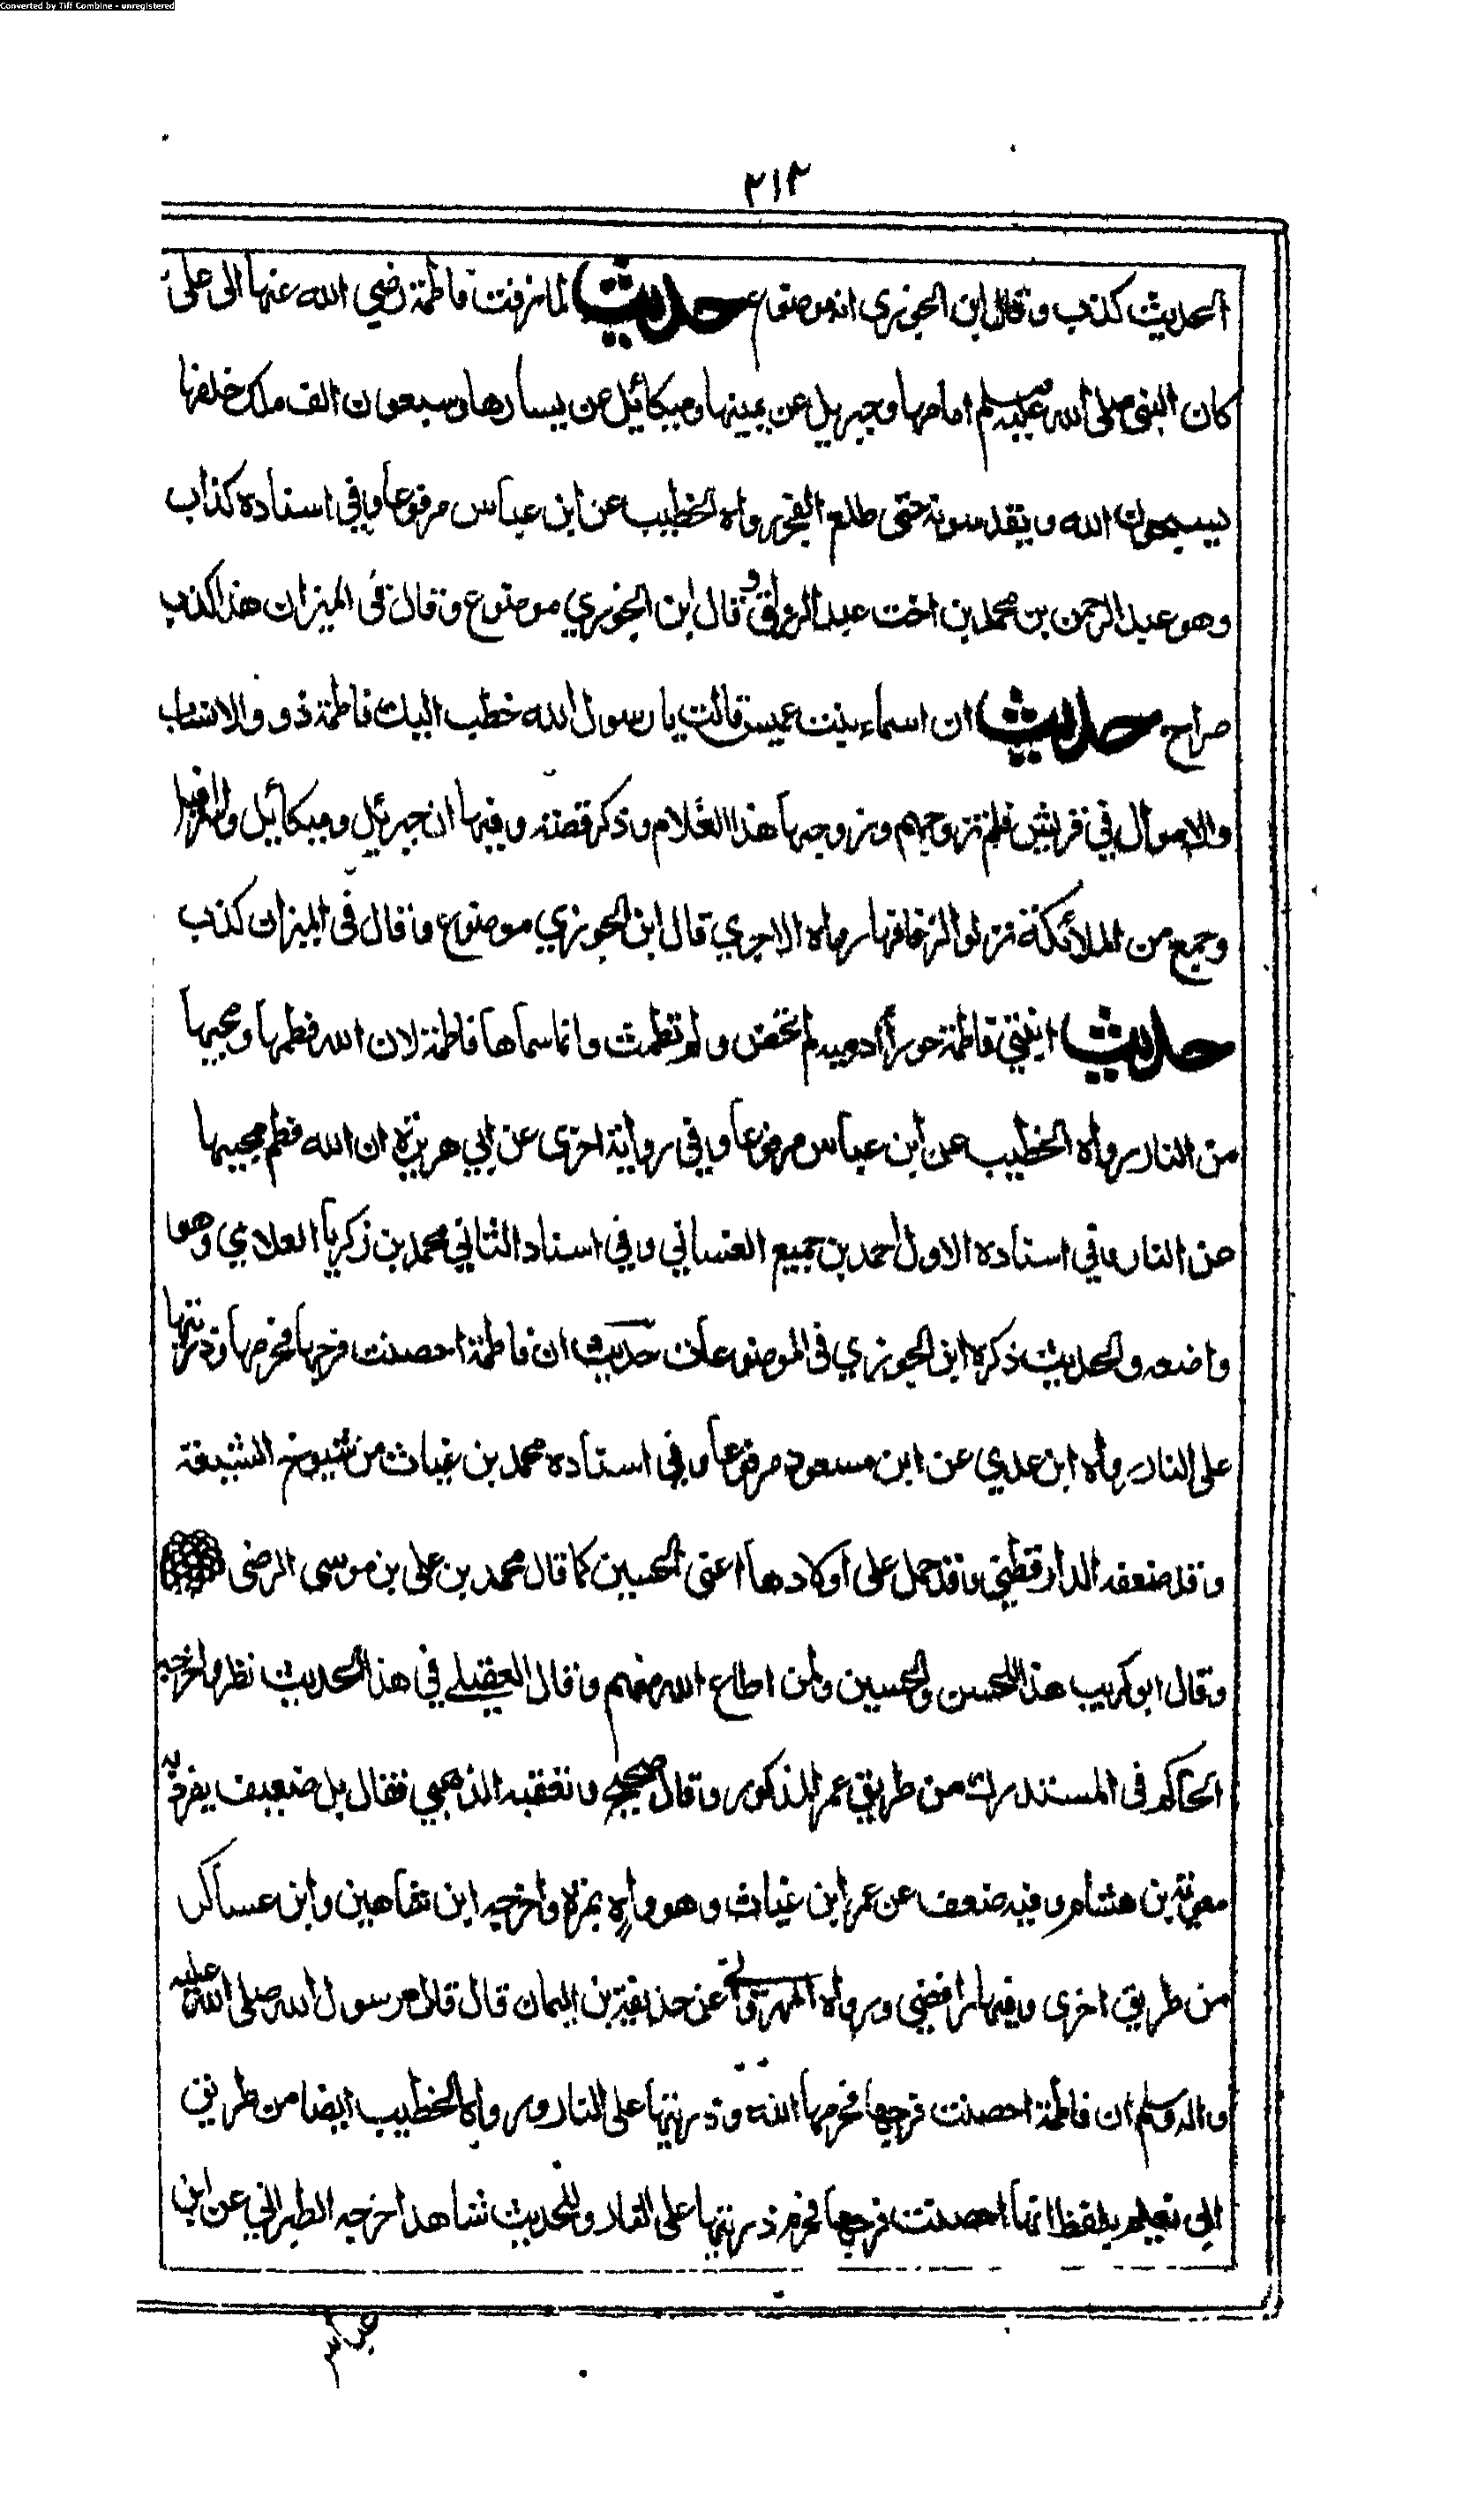 Converted by Tiff Combine - unregistered
٢١٢
الحديث كذب وقال ابن الجوزي انه موضوع حديث لما زفت فاطمة رضي الله عنها الى علي
كان النبي صلى الله عليه وسلم امامها وجبريل عن يمينها وميكائيل عن يسارها وسبعون الف ملك خلفها
يسبحون الله ويقدسونه حتى طلع الفجر رواه الخطيب عن ابن عباس مرفوعا وفي اسناده كذاب
وهو عبد الرحمن بن محمد بن اخت عبد الرزاق وقال ابن الجوزي موضوع وقال في الميزان هذا كذب
صراح حديث ان اسماء بنت عميس قالت يا رسول الله خطب اليك فاطمة ذوو الانساب
والاموال في قريش فلم تزوجهم وزوجها هذا الغلام وذكر قصته وفيها ان جبرئيل وميكائيل واسرافيل
وجمع من الملائكة نزلوا لزفافها رواه الاجري قال ابن الجوزي موضوع وقال في الميزان كذب
حديث ابنتي فاطمة حوراء ادمية لم تحض ولم تطمث وانما سماها فاطمة لان الله فطمها ومحبيها
من النار رواه الخطيب عن ابن عباس مرفوعا وفي رواية اخرى عن ابي هريرة ان الله فطم محبيها
من النار وفي اسناده الاول احمد بن جميع الغساني وفي اسناد الثاني محمد بن زكريا العلاي وهو
واضعه والحديث ذكره ابن الجوزي في الموضوعات حديث ان فاطمة احصنت فرجها فحرمها وذريتها
على النار رواه ابن عدي عن ابن مسعود مرفوعا وفي اسناده محمد بن غياث من شيوخ الشيعة
وقد ضعفه الدارقطني وقد حمل على اولادها اعني الحسين كما قال محمد بن علي بن موسى الرضي
وقال ابو كريب هذا للحسن والحسين ولمن اطاع الله منهم وقال العقيلي في هذا الحديث نظر واخرجه
الحاكم في المستدرك من طريق عمر المذكور وقال صحيح وتعقبه الذهبي فقال بل ضعيف يفرد به
معوية بن هشام وفيه ضعف عن عمر ابن غياث وهو واهٍ بمرة واخرجه ابن شاهين وابن عساكر
من طريق اخرى وفيها رافضي ورواه المهرواني عن حذيفة بن اليمان قال قال رسول الله صلى الله عليه
واله وسلم ان فاطمة احصنت فرجها فحرمها الله وذريتها على النار ورواه الخطيب ايضا من طريق
ابي نعيم بلفظ انها احصنت فرجها فحرم ذريتها على النار وللحديث شاهد اخرجه الطبراني عن ابن